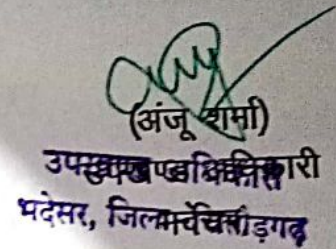 (अंजू शर्मा)
उपखण्ड अधिकारी
भदेसर, जिला चित्तौड़गढ़